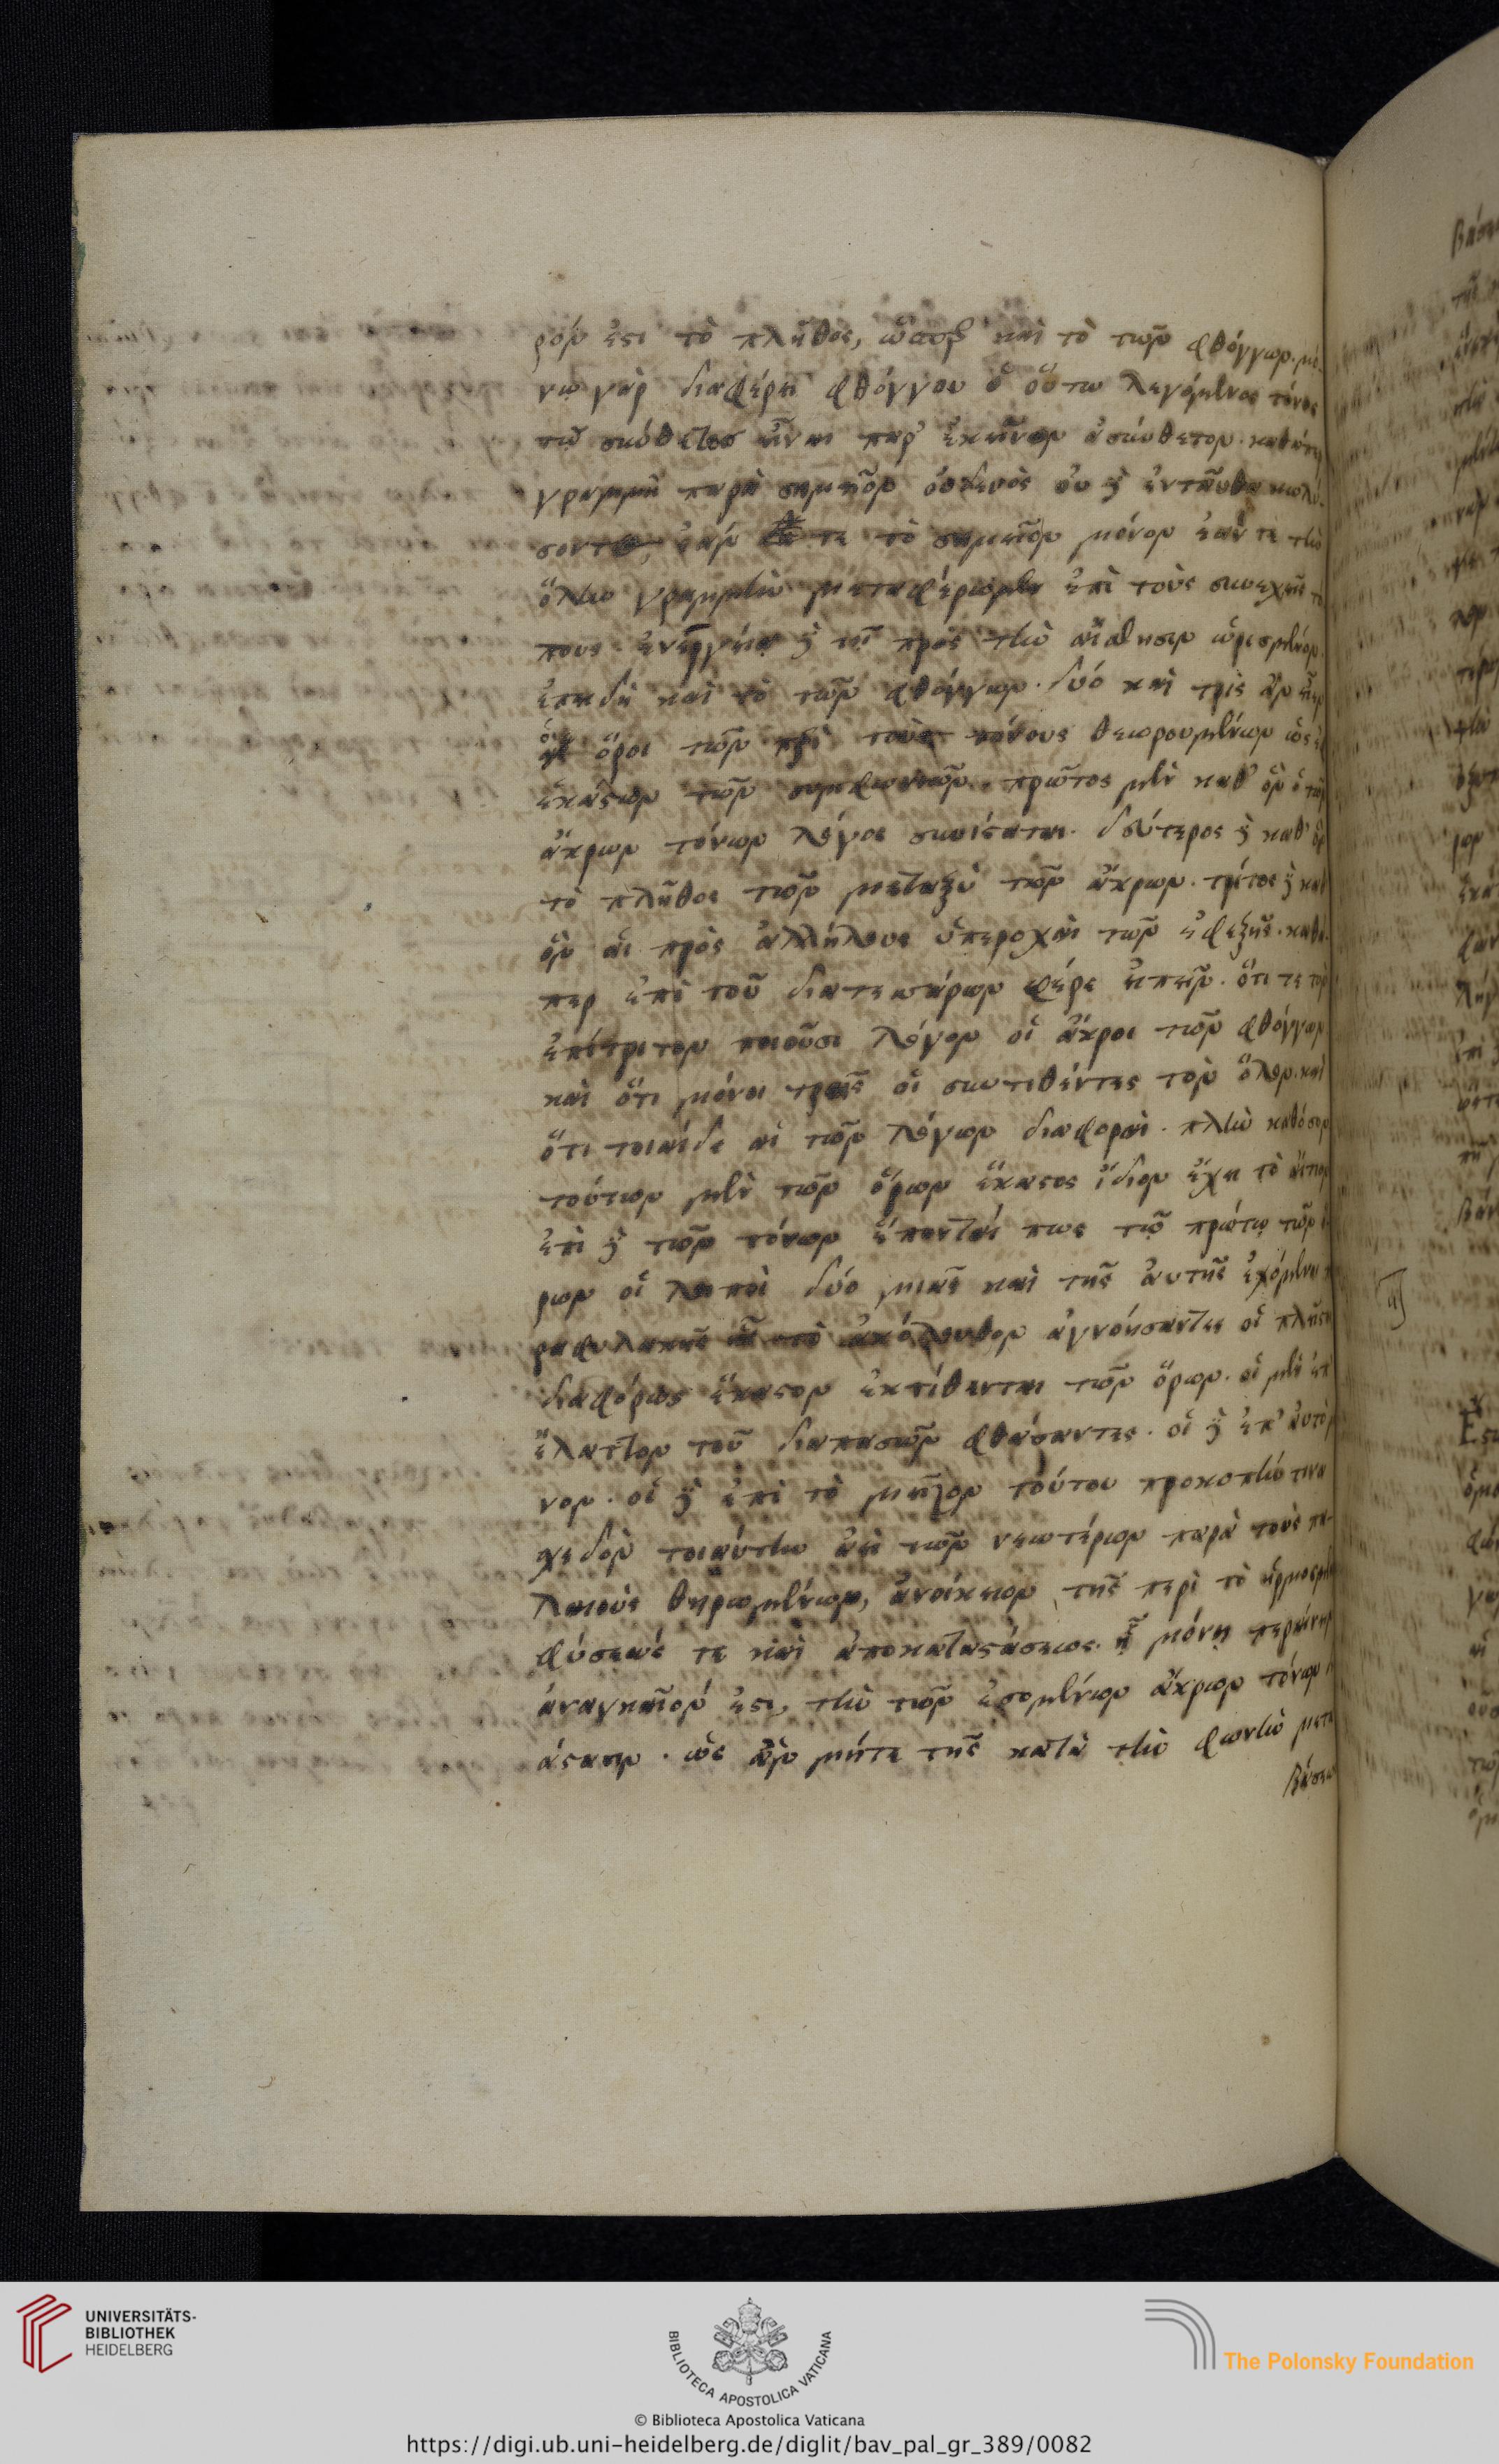 ρόν ἐστι τὸ πλῆθος, ὥσπερ καὶ τὸ τῶν φθόγγων. μό-
νῳ γὰρ διαφέρει φθόγγου ὁ οὕτω λεγόμενος τόνος
τῷ σύνθετος εἶναι παρ' ἐκεῖνον ἀσύνθετον. καθάπερ
γραμμὴ παρὰ σημεῖον οὐδενὸς οὐ δὲ ἐνταῦθα κωλύ-
σοντος, ἐάν τε τὸ σημεῖον μόνον ἐάν τε τὴν
ὅλην γραμμὴν μεταφέρωμεν ἐπὶ τοὺς συνεχεῖς τό-
πους. ἐνεργείᾳ δὲ τῇ πρὸς τὴν αἴσθησιν ὡρισμένον.
ἐπειδὴ καὶ τὸ τῶν φθόγγων. δύο καὶ τρὶς ἂν εἶεν
ὅροι τῶν περὶ τοὺς τόνους θεωρουμένων ὡς ἐφ'
ἑκάστων τῶν συμφωνιῶν. πρῶτος μὲν καθ' ὃν ὁ τῶν
ἄκρων τόνων λόγος συνίσταται. δεύτερος δὲ καθ' ὃν
τὸ πλῆθος τῶν μεταξὺ τῶν ἄκρων. τρίτος δὲ καθ'
ὃν αἱ πρὸς ἀλλήλους ὑπεροχαὶ τῶν ἐφεξῆς. καθά-
περ ἐπὶ τοῦ διατεσσάρων φέρε εἰπεῖν. ὅτι τε τὸν
ἐπίτριτον ποιοῦσι λόγον οἱ ἄκροι τῶν φθόγγων
καὶ ὅτι μόνοι τρεῖς οἱ συντιθέντες τὸν ὅλον. καὶ
ὅτι τοιαίδε αἱ τῶν λόγων διαφοραί. πλὴν καθόσον
τούτων μὲν τῶν ὅρων ἕκαστος ἴδιον ἔχει τὸ αἴτιον
ἐπὶ δὲ τῶν τόνων ἕπονταί πως τῷ πρώτῳ τῶν ὅ-
ρων οἱ λοιποὶ δύο μιᾶς καὶ τῆς αὐτῆς ἐχόμενοι
ραφυλακῆς τὸ ἀκόλουθον ἀγνοήσαντες οἱ πλεῖστοι
διαφόρως ἕκαστον ἐκτίθενται τῶν ὅρων. οἱ μὲν ἐπ'
ἔλαττον τοῦ διαπασῶν φθάσαντες. οἱ δὲ ἐπ' αὐτὸ
νον. οἱ δὲ ἐπὶ τὸ μεῖζον τούτου προκοπήν τινα
χεδὸν τοιαύτην ἀεὶ τῶν νεωτέρων παρὰ τοὺς πα-
λαιοὺς θηρωμένων, ἀνοίκειον τῆς περὶ τὸ ἡρμοσμένον
φύσεώς τε καὶ ἀποκαταστάσεως. ᾗ μόνῃ περαίνειν
ἀναγκαῖόν ἐστι, τὴν τῶν ἐσομένων ἄκρων τόνων
άστασιν. ὡς ἂν μήτε τῆς κατὰ τὴν φωνὴν μετα
βάσεως
UNIVERSITÄTS-
BIBLIOTHEK
HEIDELBERG
BIBLIOTECA APOSTOLICA VATICANA
The Polonsky Foundation
© Biblioteca Apostolica Vaticana
https://digi.ub.uni-heidelberg.de/diglit/bav_pal_gr_389/0082